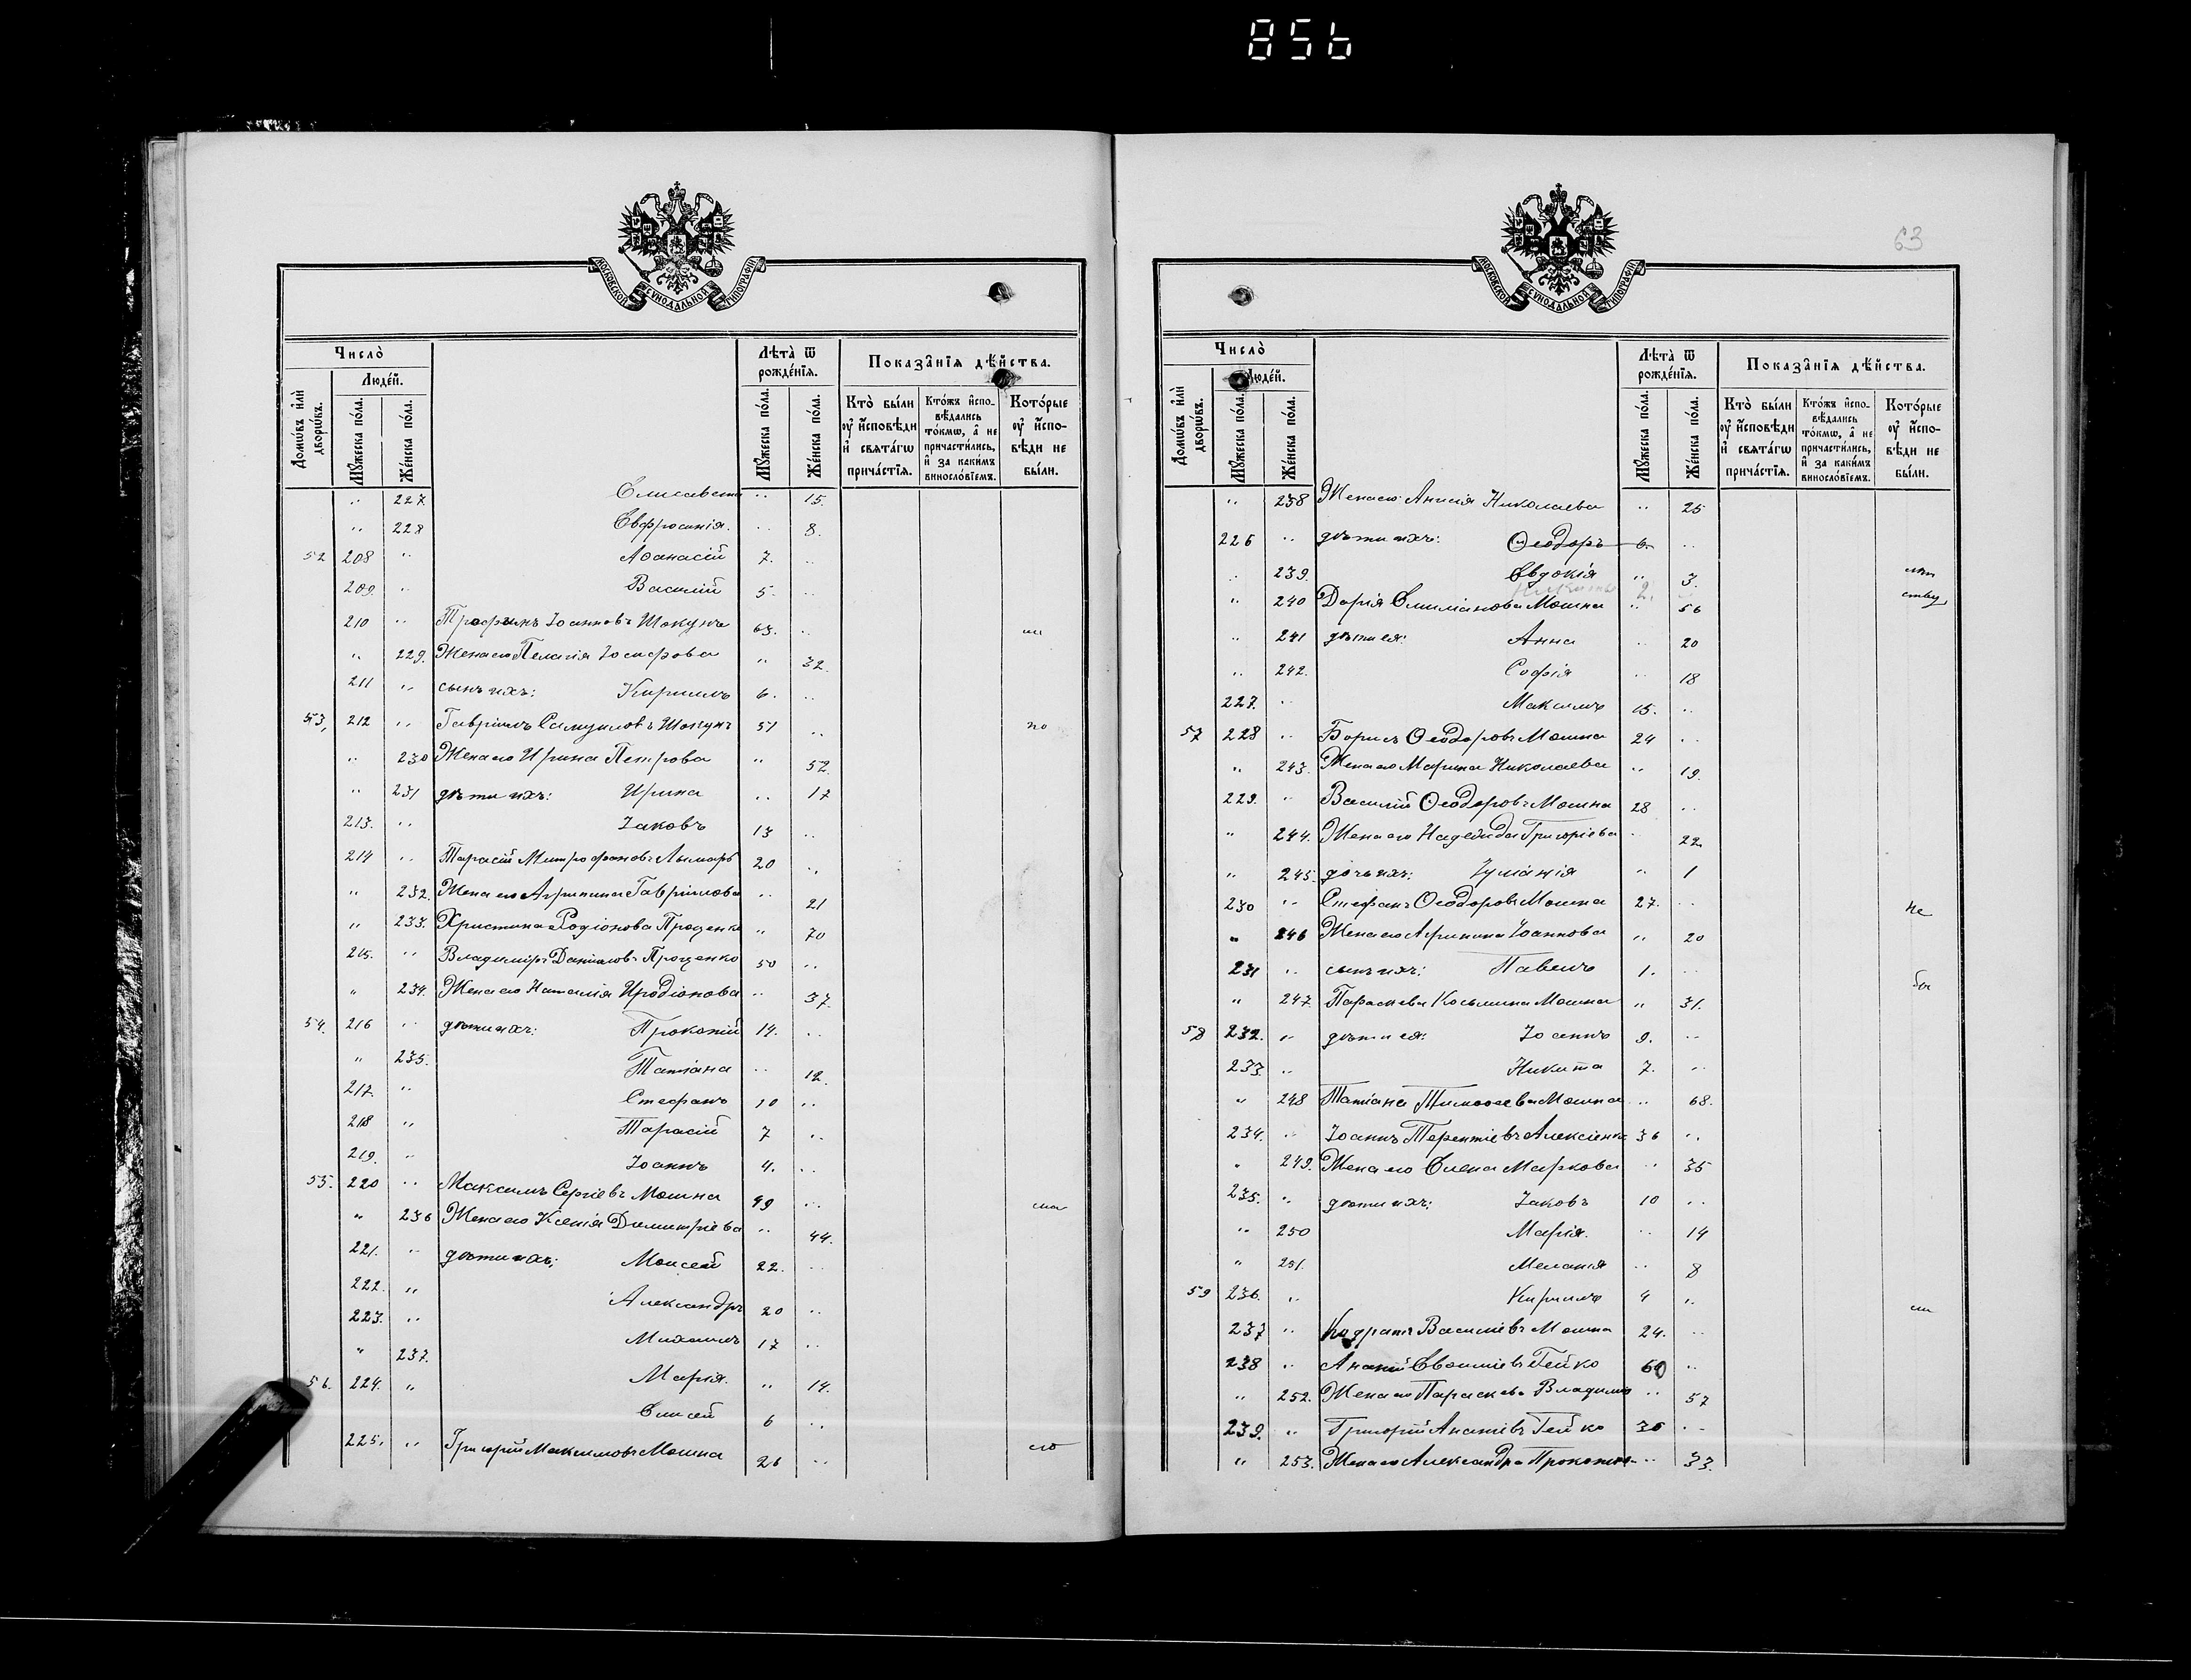 856
МОСКОВСКОЙ СѴНОДАЛЬНОЙ ТИПОГРАФІИ
Число̀
Людéй.
Домѡ́въ и҆лѝ дворѡ́въ.
Мꙋ́жеска по́ла.
Же́нска по́ла.
Лѣ́та ѿ рождéнїѧ.
Мꙋ́жеска по́ла.
Же́нска по́ла.
Показа̑нїѧ дѣ́йства.
Кто̀ бы́ли ᲂу҆ и҆́сповѣди и҆ свѧта́гѡ прича́стїѧ.
Кто́жъ и҆спо-вѣ́дались то́кмѡ, а҆ не причасти́лись, и҆ за каки́мъ винослóвїемъ.
Кото́рые ᲂу҆ и҆́спо-вѣди не бы́ли.
" 227. Елисавета " 15.
" 228 Евфросинія. " 8.
52 208 " Аѳанасій 7. "
209. " Василій 5. "
210 " Трофимъ Іоанновъ Шокунъ 63. "
" 229. Жена его Пелагія Іосифова " 32.
211 " сынъ ихъ: Кириллъ 6. "
53, 212 " Гавріилъ Самуиловъ Шокунъ 51 " по
" 230 Жена его Ирина Петрова " 52.
" 231 дѣти ихъ: Ирина " 17
213. " Іаковъ 13 "
214 " Тарасій Митрофановъ Лымарь 20 "
" 232. Жена его Агрипина Гавріилова " 21
" 233. Христина Родіонова Проценко " 70
215. " Владиміръ Даніиловъ Проценко 50 "
" 234. Жена его Наталія Иродіонова " 37.
54. 216 " дѣти ихъ: Прокопій 14. "
" 235. Татіана " 12.
217. " Стефанъ 10 "
218 " Тарасій 7 "
219. " Іоаннъ 4. "
55. 220 " Максимъ Сергіевъ Мошна 49 "
" 236 Жена его Ксенія Димитріева " 44.
221. " дѣти ихъ: Моисей 22. "
222. " Александръ 20 "
223. " Михаилъ 17 "
" 237. Марія. " 14.
56. 224. " Елисей 6 "
225. " Григорій Максимовъ Мошна 26 "
63
МОСКОВСКОЙ СѴНОДАЛЬНОЙ ТИПОГРАФІИ
Число̀
Людéй.
Домѡ́въ и҆лѝ дворѡ́въ.
Мꙋ́жеска по́ла.
Же́нска по́ла.
Лѣ́та ѿ рождéнїѧ.
Мꙋ́жеска по́ла.
Же́нска по́ла.
Показа̑нїѧ дѣ́йства.
Кто̀ бы́ли ᲂу҆ и҆́сповѣди и҆ свѧта́гѡ прича́стїѧ.
Кто́жъ и҆спо-вѣ́дались то́кмѡ, а҆ не причасти́лись, и҆ за каки́мъ винослóвїемъ.
Кото́рые ᲂу҆ и҆́спо-вѣди не бы́ли.
" 238 Жена его Анисія Николаева " 25
226 " дѣти ихъ: Ѳеодоръ 6. "
" 239. Евдокія " 3.
2.
" 240 Дарія Мошна " 56
" 241 дѣти ея: Анна " 20
" 242. Софія " 18
227. " Максимъ 15. "
57 228 " Борисъ Ѳеодоровъ Мошна 24 "
" 243. Жена его Марина Николаева " 19.
229. " Василій Ѳеодоровъ Мошна 28 "
" 244. Жена его Надежда Григоріева " 22
" 245. дочь ихъ: Іуліанія " 1
230 " Стефанъ Ѳеодоровъ Мошна 27. " не
" 246 Жена его Агрипина Іоаннова " 20
231 " сынъ ихъ: Павелъ 1. "
" 247. Параскева Косьмина Мошна " 31.
58 232. " дѣти ея: Іоаннъ 9. "
233. " Никита 7. "
" 248 Татіана Тимоѳеева Мошна " 68.
234. " Іоаннъ Терентіевъ Алексіенко 36 "
" 249. Жена его Елена Маркова " 35
235. " дѣти ихъ: Іаковъ 10 "
" 250 Марія. " 14
" 251. Меланія " 8
59 236. " Кириллъ 4 "
237 " Кодратъ Василіевъ Мошна 24. "
238 " Ананій Гейко 60 "
" 252. Жена его Параскева " 57
239. " Григорій Ананіевъ Гейко 36 "
" 253. Жена его Александра " 33.